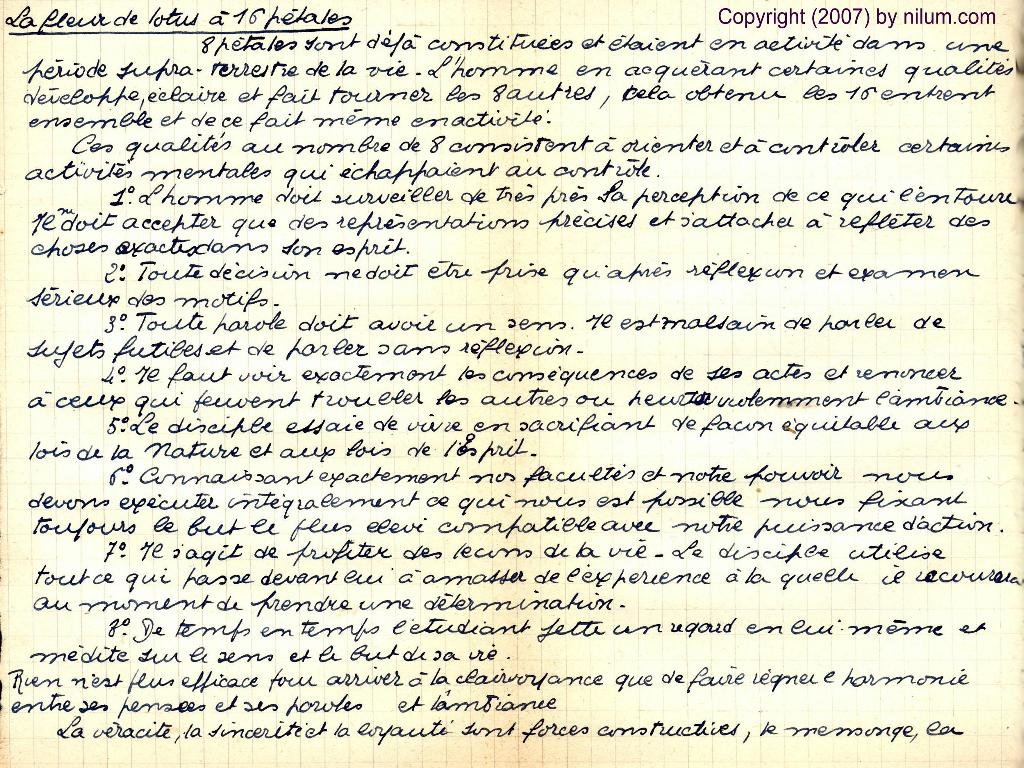 La fleur de lotus à 16 pétales
Copyright (2007) by nilum.com
8 pétales sont déjà constituées et étaient en activité dans une
période supra-terrestre de la vie - L'homme en acquérant certaines qualités
développe, éclaire et fait tourner les 8 autres, cela obtenu les 16 entrent
ensemble et de ce fait même en activité.
Ces qualités au nombre de 8 consistent à orienter et à contrôler certaines
activités mentales qui échappaient au contrôle.
1° L'homme doit surveiller de très près la perception de ce qui l'entoure
Il ne doit accepter que des représentations précises et s'attacher à refléter des
choses exactes dans son esprit.
2° Toute décision ne doit être prise qu'après réflexion et examen
sérieux des motifs.
3° Toute parole doit avoir un sens. Il est malsain de parler de
sujets futiles et de parler sans réflexion -
4° Il faut voir exactement les conséquences de ses actes et renoncer
à ceux qui peuvent troubler les autres ou violemment l'ambiance -
5° Le disciple essaie de vivre en sacrifiant de façon équitable aux
lois de la Nature et aux lois de l'Esprit -
6° Connaissant exactement nos facultés et notre pouvoir nous
devons exécuter intégralement ce qui nous est possible nous fixant
toujours le but le plus élevé compatible avec notre puissance d'action.
7° Il s'agit de profiter des leçons de la vie - Le disciple utilise
tout ce qui passe devant lui à amasser de l'expérience à la quelle il recourera
au moment de prendre une détermination -
8° De temps en temps l'étudiant jette un regard en lui-même et
médite sur le sens et le but de sa vie.
Rien n'est plus efficace pour arriver à la clairvoyance que de faire régner l'harmonie
entre ses pensées et ses paroles et l'ambiance
La véracité, la sincérité et la loyauté sont forces constructives, le mensonge, la